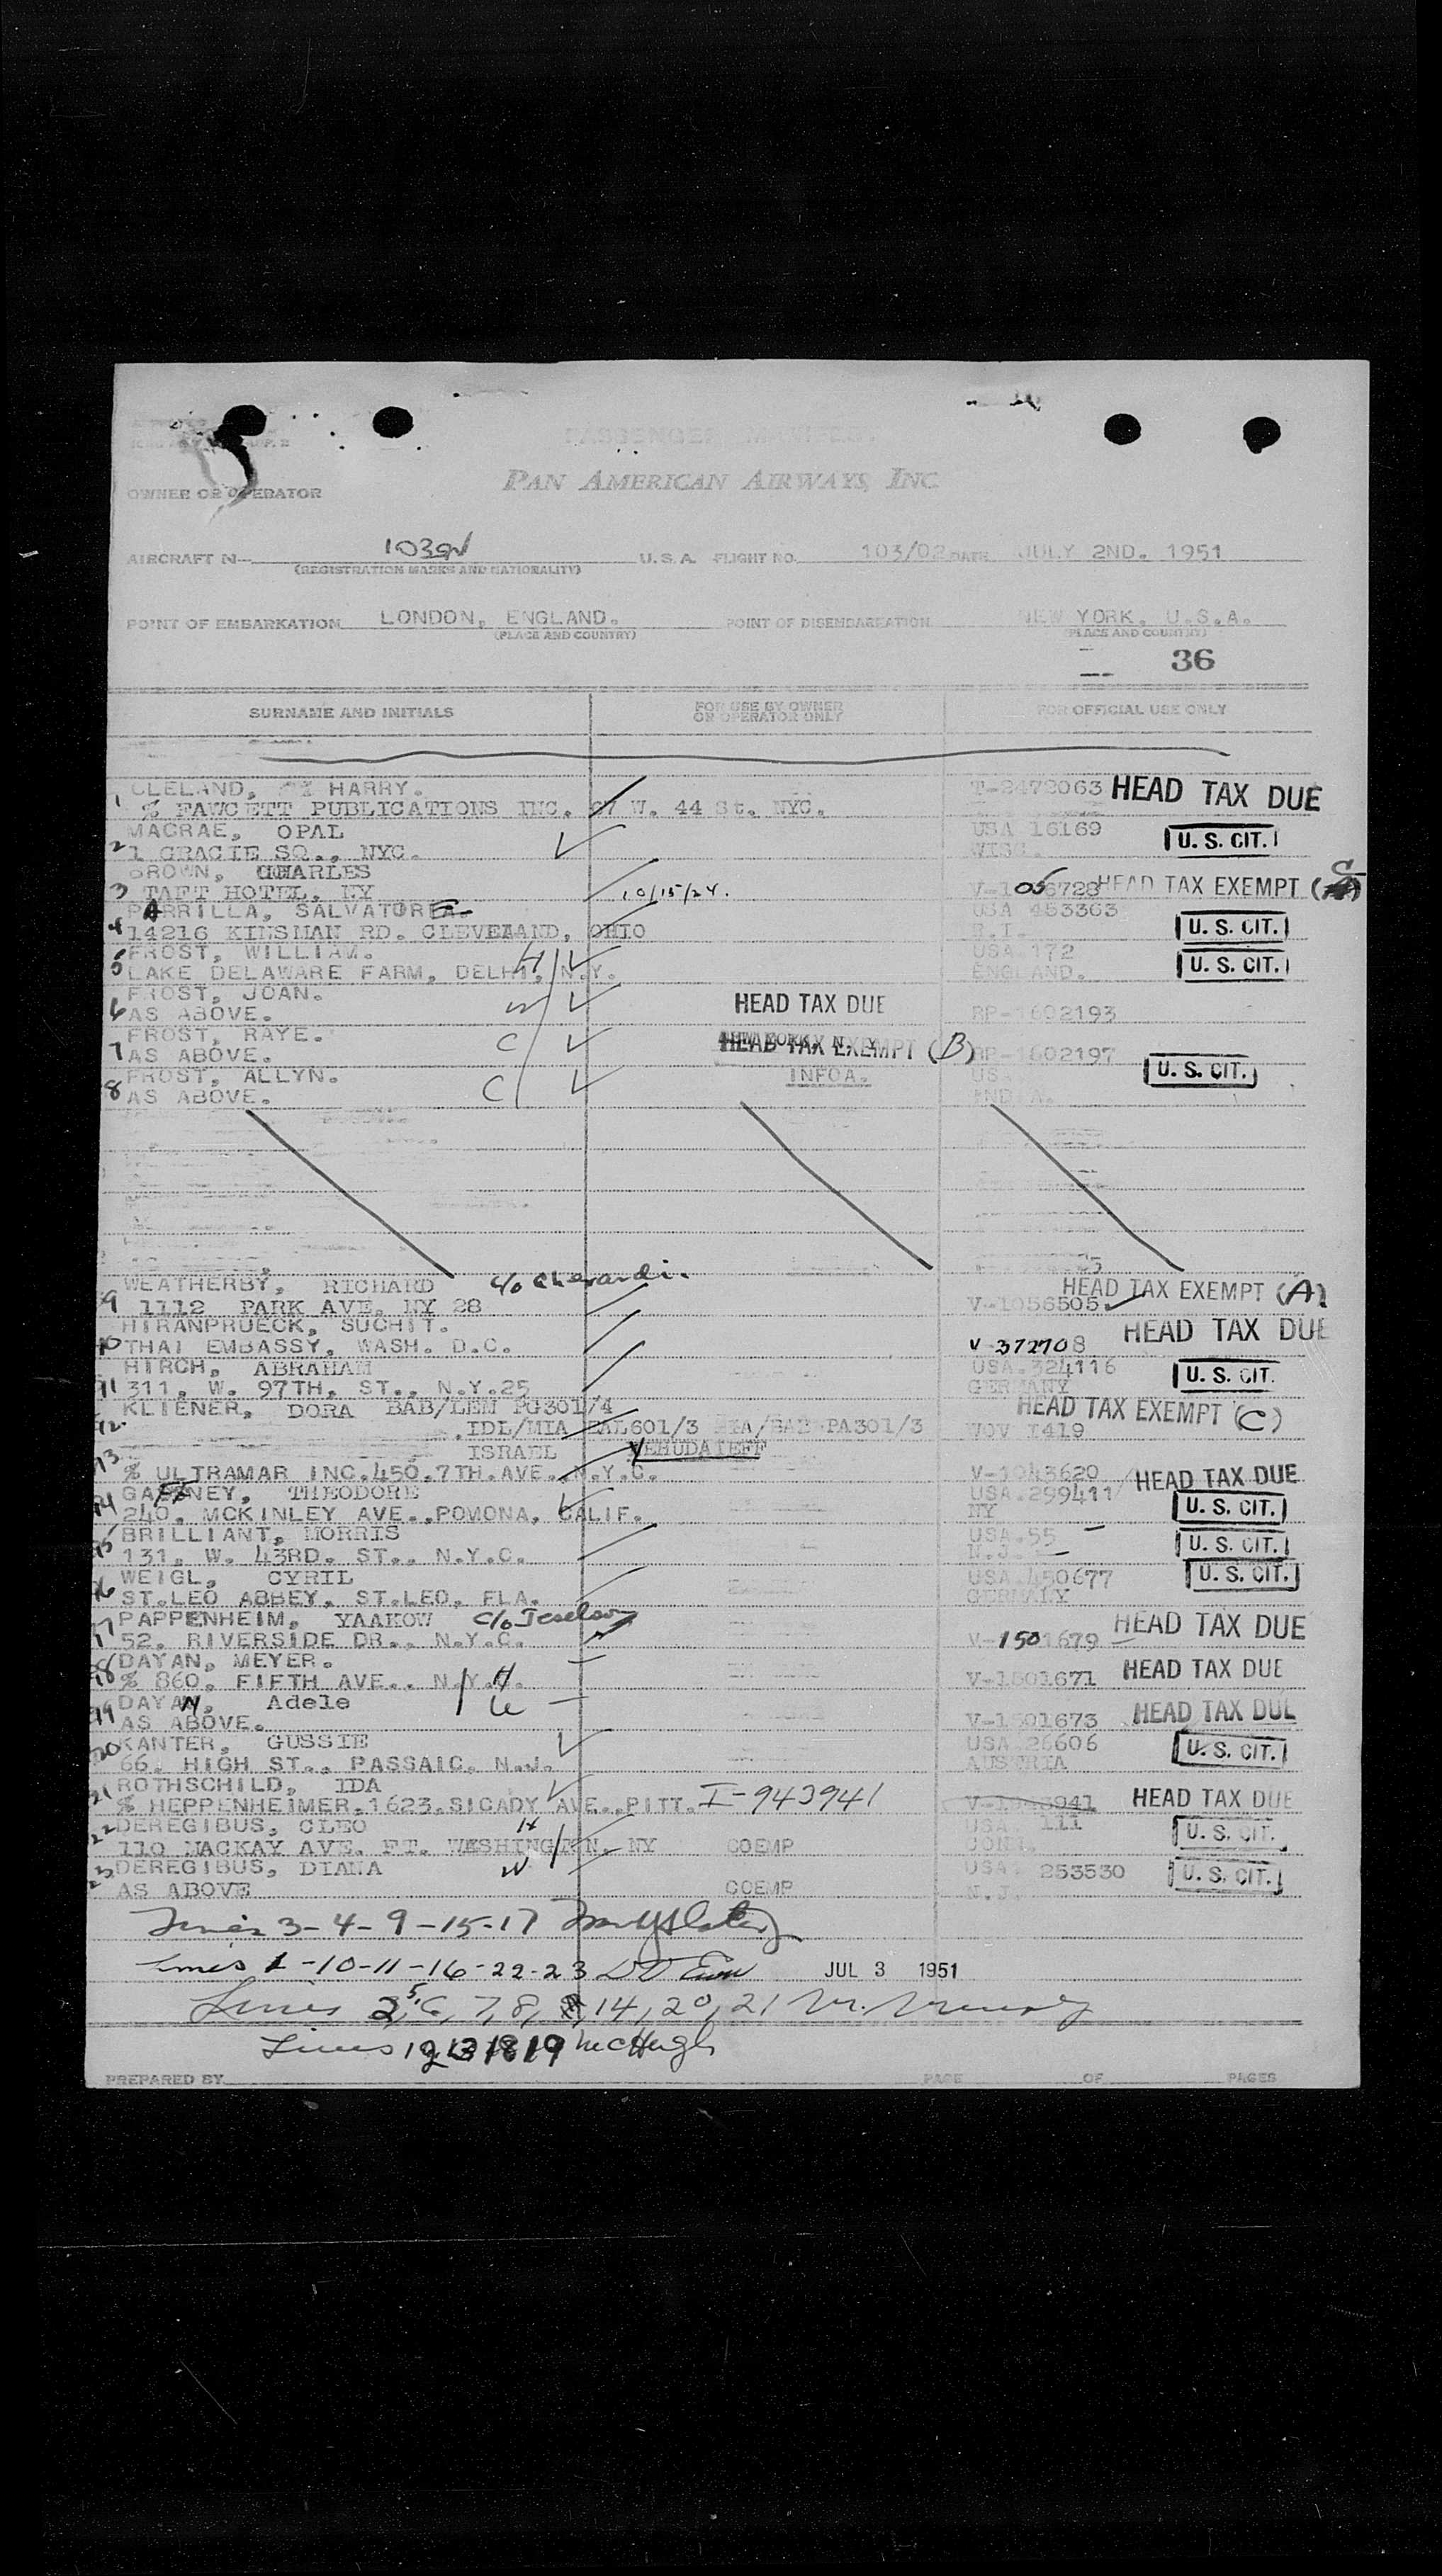 PASSENGER MANIFEST
PAN AMERICAN AIRWAYS, INC
OWNER OR OPERATOR
AIRCRAFT N- U.S.A. FLIGHT NO. 103/02 DATE JULY 2ND. 1951
(REGISTRATION MARKS AND NATIONALITY)
POINT OF EMBARKATION LONDON, ENGLAND. POINT OF DISEMBARKATION NEW YORK, U.S.A.
(PLACE AND COUNTRY) (PLACE AND COUNTRY)
36
SURNAME AND INITIALS FOR USE BY OWNER OR OPERATOR ONLY FOR OFFICIAL USE ONLY
CLELAND, HARRY. T-2472063 HEAD TAX DUE
1 % FAWCETT PUBLICATIONS INC. 67 W. 44 St. NYC.
MACRAE, OPAL USA 16169 U. S. CIT.
2 1 GRACIE SQ., NYC. WISC.
BROWN, CHARLES
3 TAFT HOTEL, NY 10/15/24. HEAD TAX EXEMPT
PARRILLA, SALVATORE USA 453363
4 14216 KINSMAN RD. CLEVELAND, OHIO R.I. U. S. CIT.
FROST, WILLIAM. H USA 172
5 LAKE DELAWARE FARM, DELHI, N.Y. ENGLAND. U. S. CIT.
FROST, JOAN.
6 AS ABOVE. W HEAD TAX DUE RP-1602193
FROST, RAYE.
7 AS ABOVE. C HEAD TAX EXEMPT (B) RP-1602197
FROST, ALLYN. INFOA. USA U. S. CIT.
8 AS ABOVE. C INDIA.
WEATHERBY, RICHARD c/o HEAD TAX EXEMPT (A)
9 1112 PARK AVE. NY 28 V-1056505
HIRANPRUECK, SUCHIT. HEAD TAX DUE
10 THAI EMBASSY, WASH. D.C. V-372708
HIRCH, ABRAHAM USA.324116
11 311, W. 97TH, ST., N.Y.25 GERMANY U. S. CIT.
KLIENER, DORA BAB/LEM PG301/4 HEAD TAX EXEMPT (C)
12. IDL/MIA EAL601/3 MIA/BAB PA301/3 VOV I419
ISRAEL YEHUDAIEFF
13 % ULTRAMAR INC.450.7TH.AVE., N.Y.C. V-1043620 HEAD TAX DUE
GAFFNEY, THEODORE USA.299411
14 240. MCKINLEY AVE.,POMONA, CALIF. NY U. S. CIT.
BRILLIANT, MORRIS USA.55
15 131. W. 43RD. ST., N.Y.C. N.J. U. S. CIT.
WEIGL, CYRIL USA.450677 U. S. CIT.
16 ST.LEO ABBEY, ST.LEO, FLA. GERMANY
PAPPENHEIM, YAAKOW c/o Jeselson HEAD TAX DUE
17 52. RIVERSIDE DR., N.Y.C. V-1501679
DAYAN, MEYER.
18 % 860. FIFTH AVE.. N.Y.C. H V-1501671 HEAD TAX DUE
DAYAN, Adele W
19 AS ABOVE. V-1501673 HEAD TAX DUE
KANTER, GUSSIE USA 26606
20 66. HIGH ST., PASSAIC, N.J. AUSTRIA U. S. CIT.
ROTHSCHILD, IDA
21 % HEPPENHEIMER.1623.SICADY AVE.,PITT. I-943941 HEAD TAX DUE
DEREGIBUS, CLEO H USA. 111
22 110 MACKAY AVE. FT. WASHINGTON. NY COEMP CONN. U. S. CIT.
DEREGIBUS, DIANA W USA. 253530 U. S. CIT.
23 AS ABOVE COEMP N.J.
Lines 3-4-9-15-17
Lines 1-10-11-16-22-23 JUL 3 1951
Lines 2, 5, 6, 7, 8, 14, 20, 21
Lines 12 13 18 19 McHugh
PREPARED BY PAGE OF PAGES